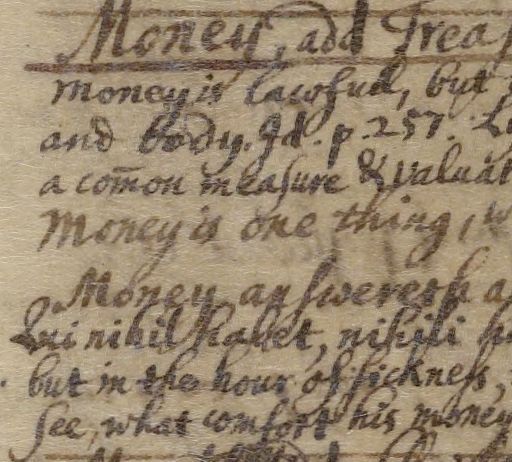 Money, add Treas
Money is lawfull, but
and body. Id. p. 257.
a com̄on measure & valuat
Money is one thing, w
Money answereth a
Qui nihil habet, nihili h
but in the hour of sickness,
see, what comfort his money